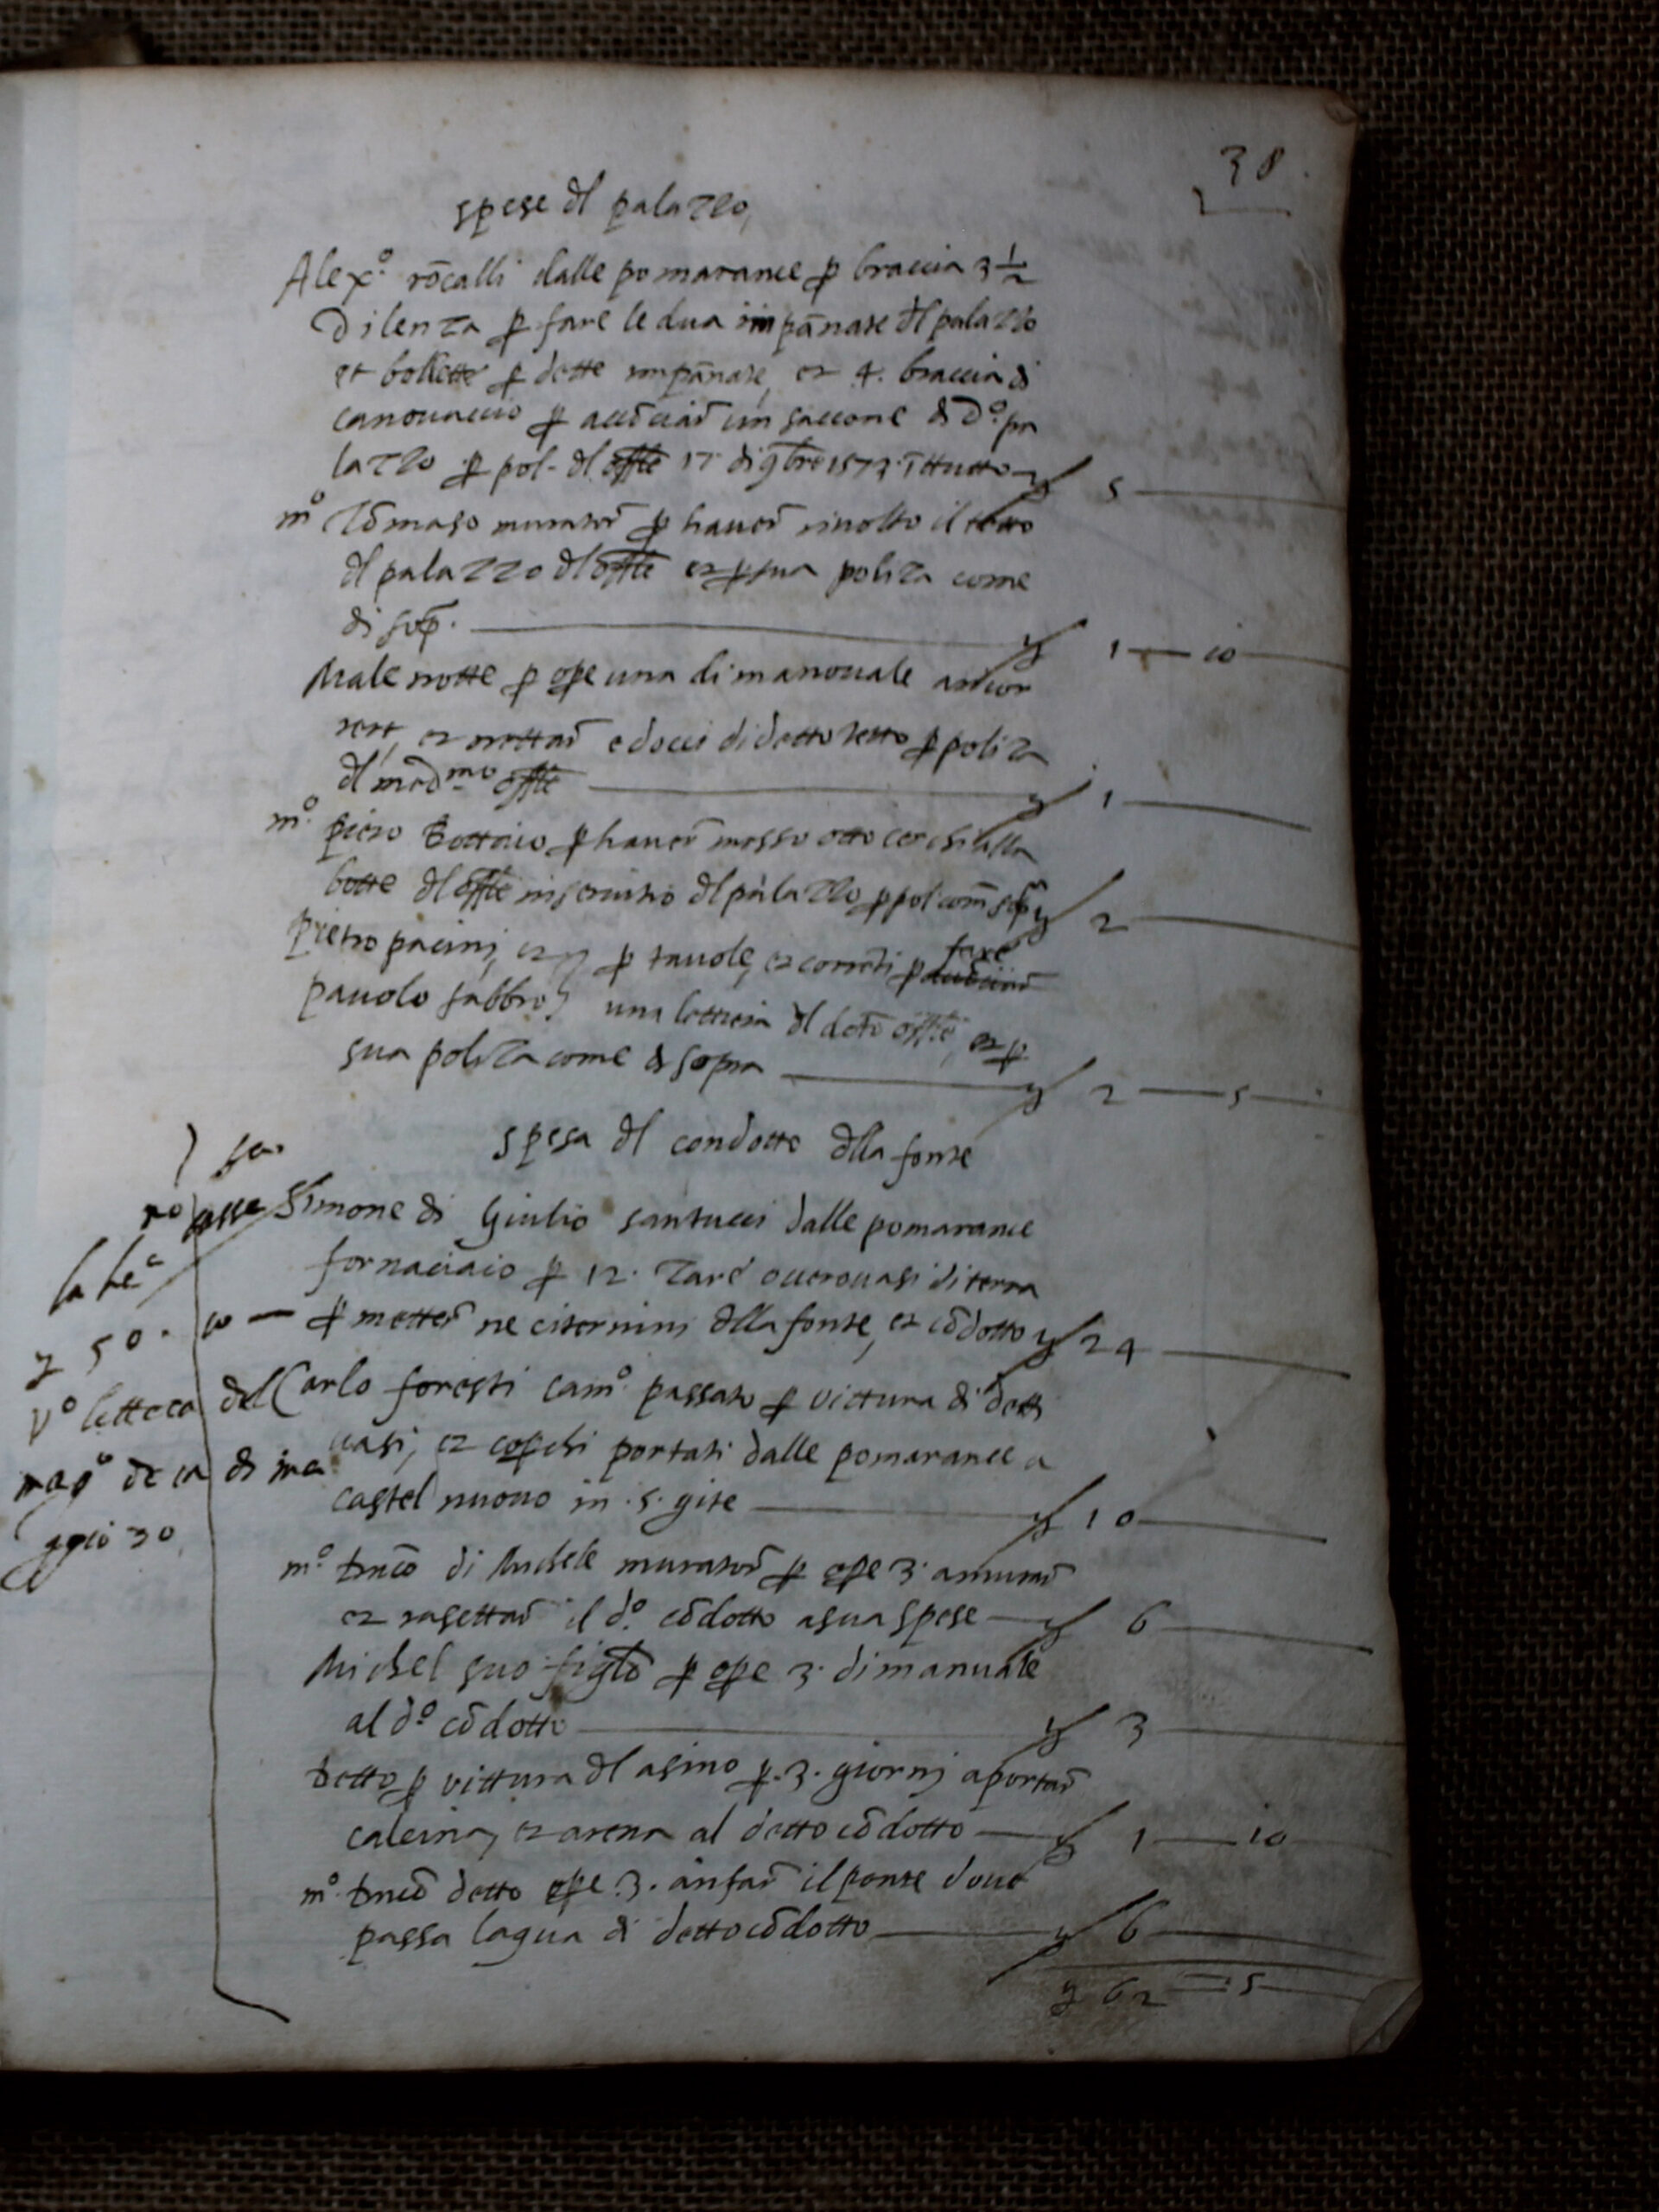 38
spese dl palazzo
Alexº. rōcalli dalle pomarance p braccia 3 1/2
di lenza p fare le dua impānate dl palazzo
et bollette p dette impānate, et 4. braccia di
canouaccio p accōciar un saccone di dº. pa
lazzo p pol. dl offle 17 di 9bre 1573. ī ttutto y 5
mº Tōmaso murator p hauer riuolto il tetto
dl palazzo dl offle et p sua poliza come
di sop. y 1 — 10
Malenotte p ope una di manouale a
et nettar e docci di detto tetto p poliza
dl medmo offle y 1
mº. piero Bottaio p hauer messo otto cerchi alla
botte dl offle in seruitio dl palazzo p pol com sop y 2
pietro pacini, et p tauole, et correnti p fare
pauolo fabbro una lettiera dl detto offle, et p
sua poliza come di sopra y 2 — 5
spesa dl condotto dlla fonte
Simone di Giulio santucci dalle pomarance
fornaciaio p 12. zare ouero uasi di terra
p metter ne citernini dlla fonte, et cōdotto y 24
Carlo foresti camº. passato p vittura di detti
uasi, et copchi portati dalle pomarance a
castel nuouo in .5. gite y 10
mº. dmco di Michele murator p ope 3. a murar
et rasettar il dº. cōdotto a sua spese y 6
Michel suo figlo p ope 3. di manuale
al dº cōdotto y 3
detto p vittura dl asino p .3. giorni a portar
calcina, et arena al detto cōdotto y 1 — 10
mº. dmco detto ope .3. in far il ponte doue
passa lagua di detto cōdotto y 6
y 62 — 5
la
y 50. 10 —
Vº lettera del
magº de ca di ma
ggio 30